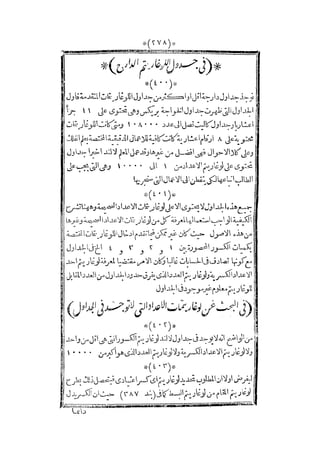 *(٢٧٨)*
*(في جدول اللوغاريتم الدارج)*
*(٤٠٠)*
توجد جداول دارجة اقل او اكثر من جداول اللوغاريتمات المتقدمة فاول
الجداول التي ظهرت جداول افواجة بريكس وهي تحتوي على ١١ جزأ
اعشاريا وجداول كاليت تصل الى عدد ١٠٨٠٠٠ ومتى كانت اللوغاريتمات
محتوية على ٨ ارقام اعشارية كانت كافية للاعمال الدقيقة المختصة بعلم الفلك
وعلى كل الاحوال فهي افضل من غيرها وقد عمل المعلم لالند اخيرا جداول
تحتوي على لوغاريتم الاعداد من ١ الى ١٠٠٠٠ وهي التي يجب على
الطالب اتباعها لكي يتفطن الى الاعمال التي ستجريها
*(٤٠١)*
جميع هذه الجداول لا تحتوي الا على لوغاريتمات الاعداد الصحيحة وهنا نشرح
الكيفية الواجب استعمالها لمعرفة كل من لوغاريتمات الاعداد الصحيحة وغيرها
من هذه الاصول حيث كان غير ممكن فيما تقدم ادخال اللوغاريتمات المختصة
بكميات الكسور المحصورة بين ١ و ٢ و ٣ و ٤ الخ في الجداول
مع كونها تصادف في الحسابات غالبا وكان الامر مقتضيا لمعرفة لوغاريتم احد
الاعداد الكسرية ولوغاريتم العدد الذي يفرق حدود الجداول من العدد المقابل
للوغاريتم معلوم غير موجود في الجداول
(في البحث عن لوغاريتمات الاعداد التي لا توجد في الجداول)
*(٤٠٢)*
من الواضح انه لا يوجد في جداول لالند لوغاريتم الكسور التي هي اقل من واحد
ولا لوغاريتم الاعداد الكسرية ولا لوغاريتم العدد الذي هو اكبر من ١٠٠٠٠
*(٤٠٣)*
ليفرض اولا ان المطلوب تحديد لوغاريتم اي كسر اعتيادي فيتحصل ذلك بطرح
لوغاريتم المقام من لوغاريتم البسط كما في (بند ٣٨٧) حيث ان الكسر يدل
دائما